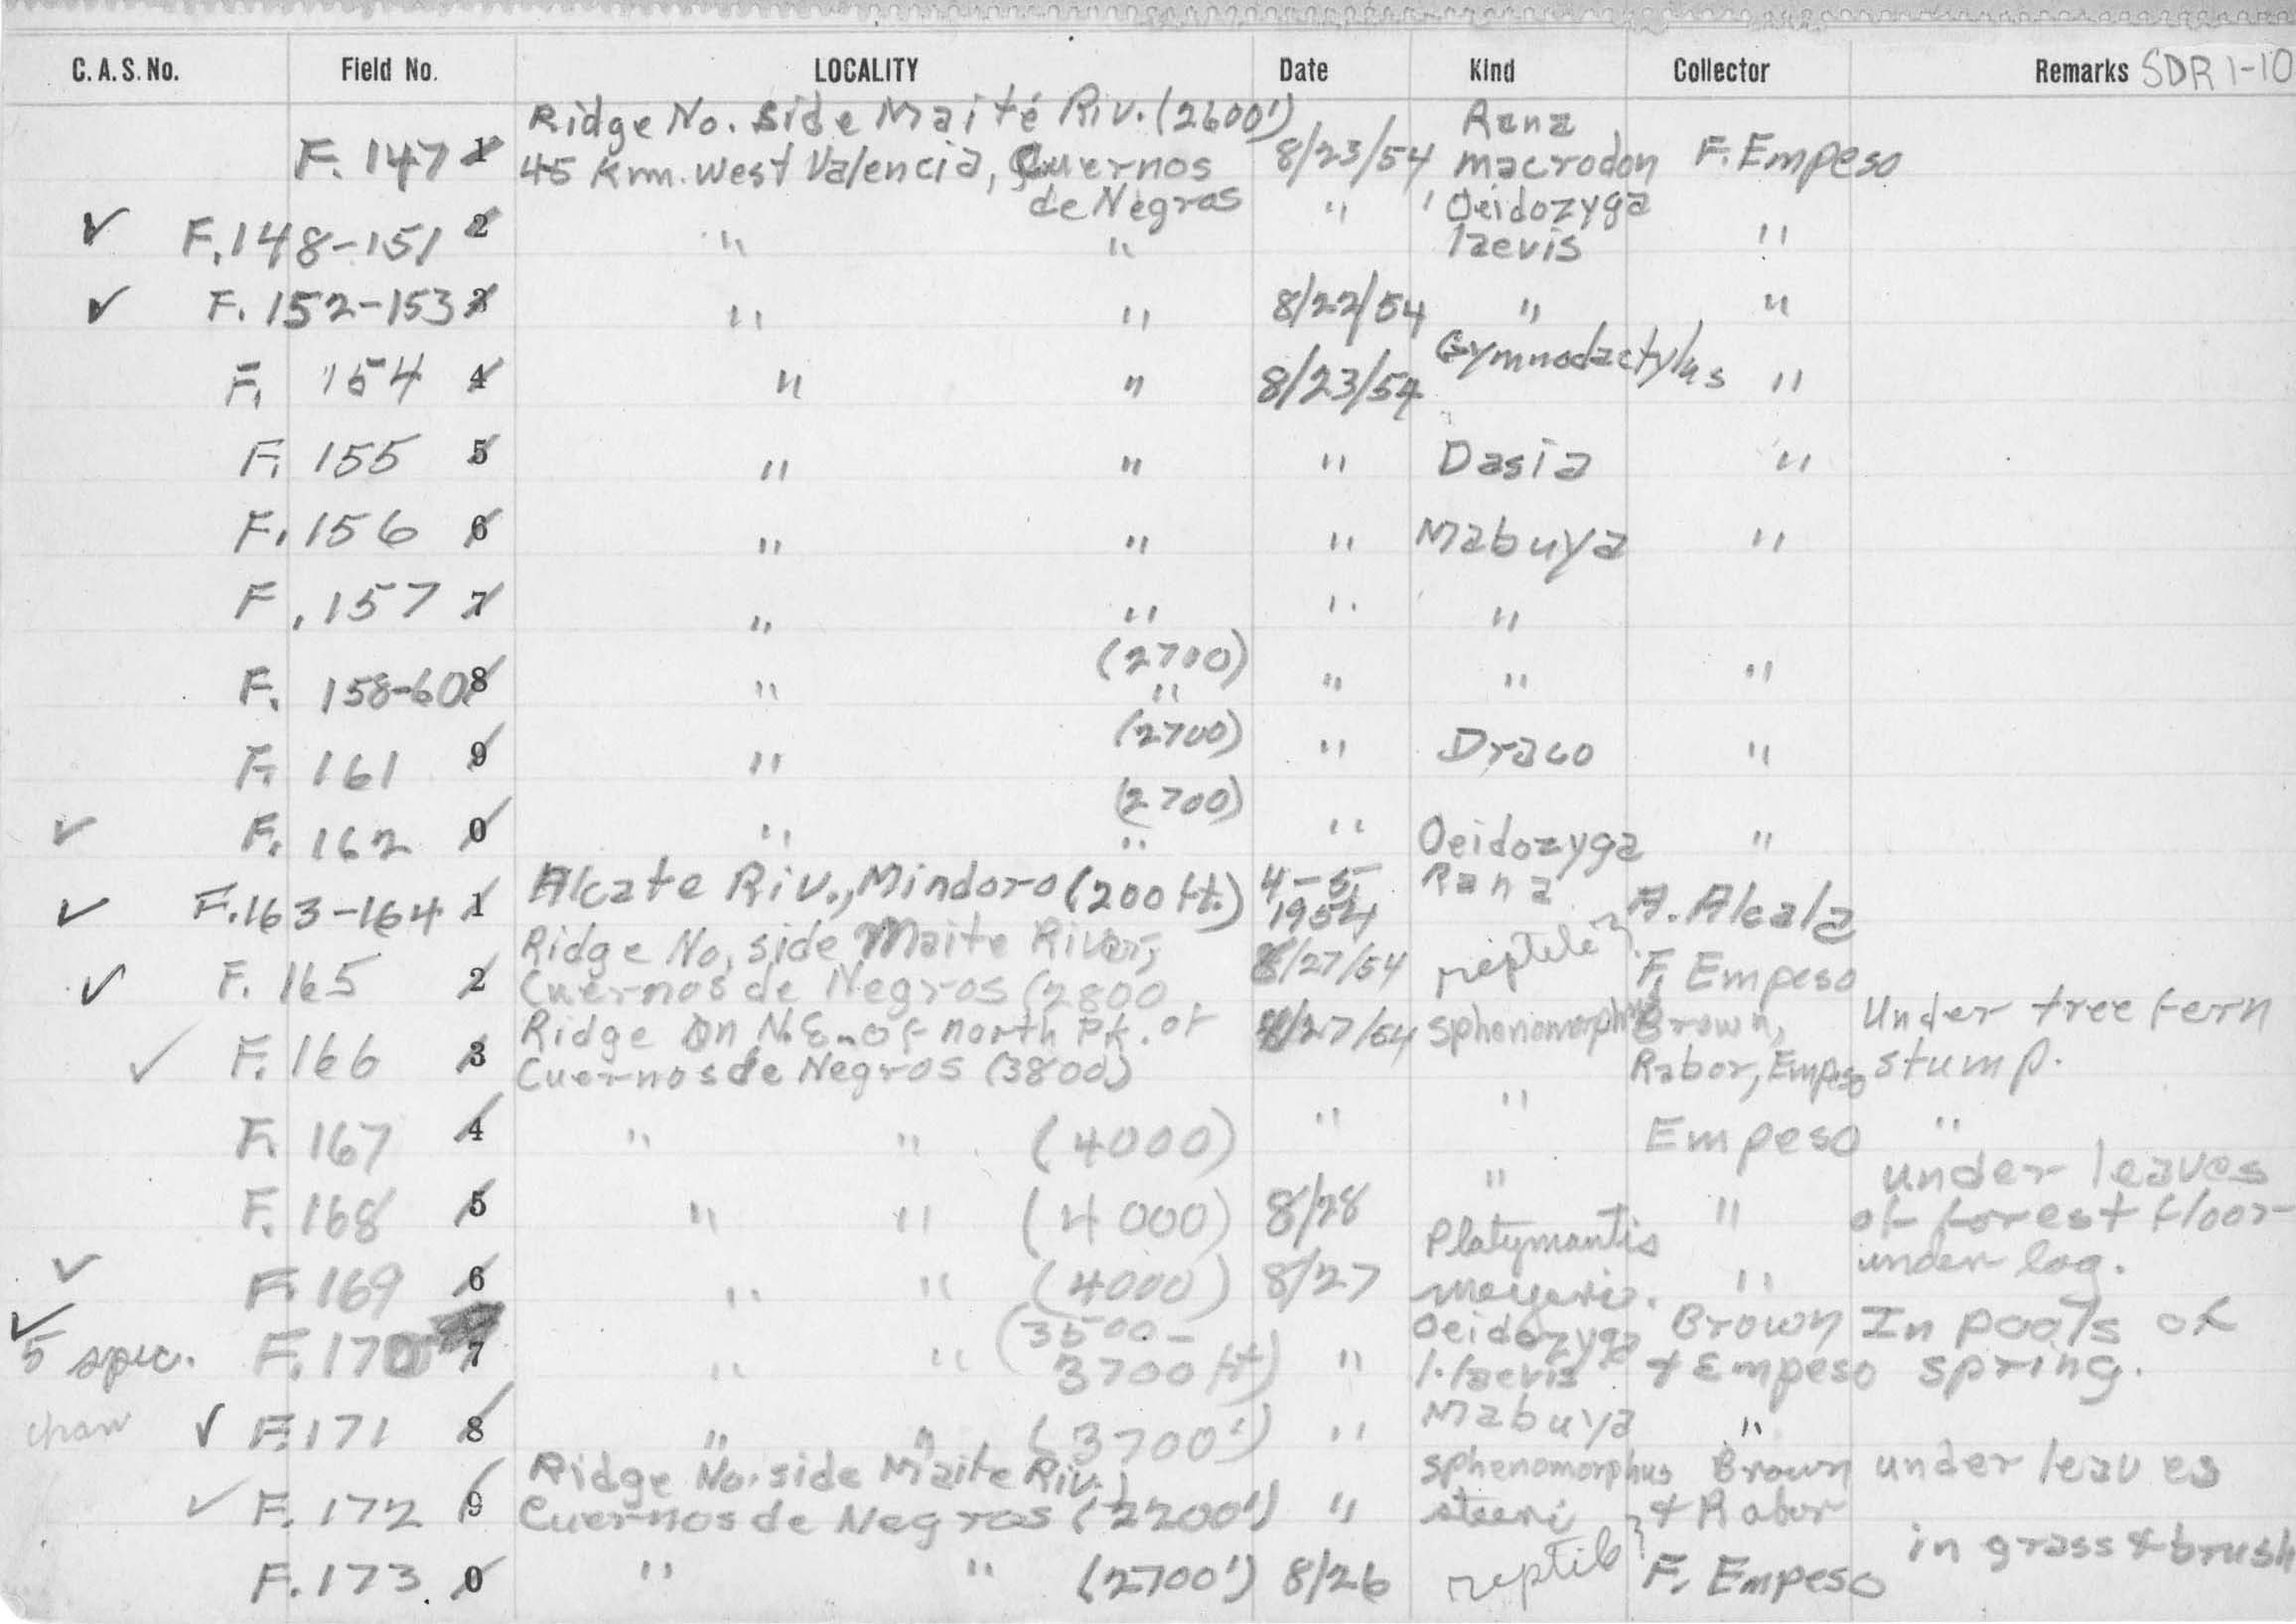 C. A. S. No. Field No. LOCALITY Date Kind Collector Remarks SDR 1-10
Ridge No. side Maité Riv. (2600') Rana
F. 147 1 45 Km. West Valencia, Cuernos 8/23/54 macrodon F. Empeso
de Negros " Oeidozyga
✓ F. 148-151 2 " " laevis "
✓ F. 152-153 3 " " 8/22/54 " "
F. 154 4 " " 8/23/54 Gymnodactylus "
F. 155 5 " " " Dasia "
F. 156 6 " " " Mabuya "
F. 157 7 " " " "
(2700)
F. 158-60 8 " " " " "
(2700)
F. 161 9 " " Draco "
(2700)
✓ F. 162 0 " " " Oeidozyga "
✓ F. 163-164 1 Alcate Riv., Mindoro (200 ft.) 4-5- 1954 Rana A. Alcala
Ridge No. side Maite River,
✓ F. 165 2 Cuernos de Negros (2800 8/27/54 reptile ? F. Empeso
Ridge on N.E. of north Pk. of 8/27/54 Sphenomorphus Brown, Under tree fern
✓ F. 166 3 Cuernos de Negros (3800) Rabor, Empeso stump.
F. 167 4 " " (4000) " " Empeso "
under leaves
F. 168 5 " " (4000) 8/28 " " of forest floor
Platymantis
✓ F. 169 6 " " (4000) 8/27 meyeri. " under log.
✓ (3500- Oeidozyga Brown In pools of
5 spec. F. 170 7 " " 3700 ft) " l. laevis + Empeso spring.
✓ F. 171 8 " " (3700') " Mabuya "
Ridge No. side Maite Riv. Sphenomorphus Brown under leaves
✓ F. 172 9 Cuernos de Negros (2200') " steeri + Rabor
F. 173 0 " " (2700') 8/26 reptile ? F. Empeso in grass + brush